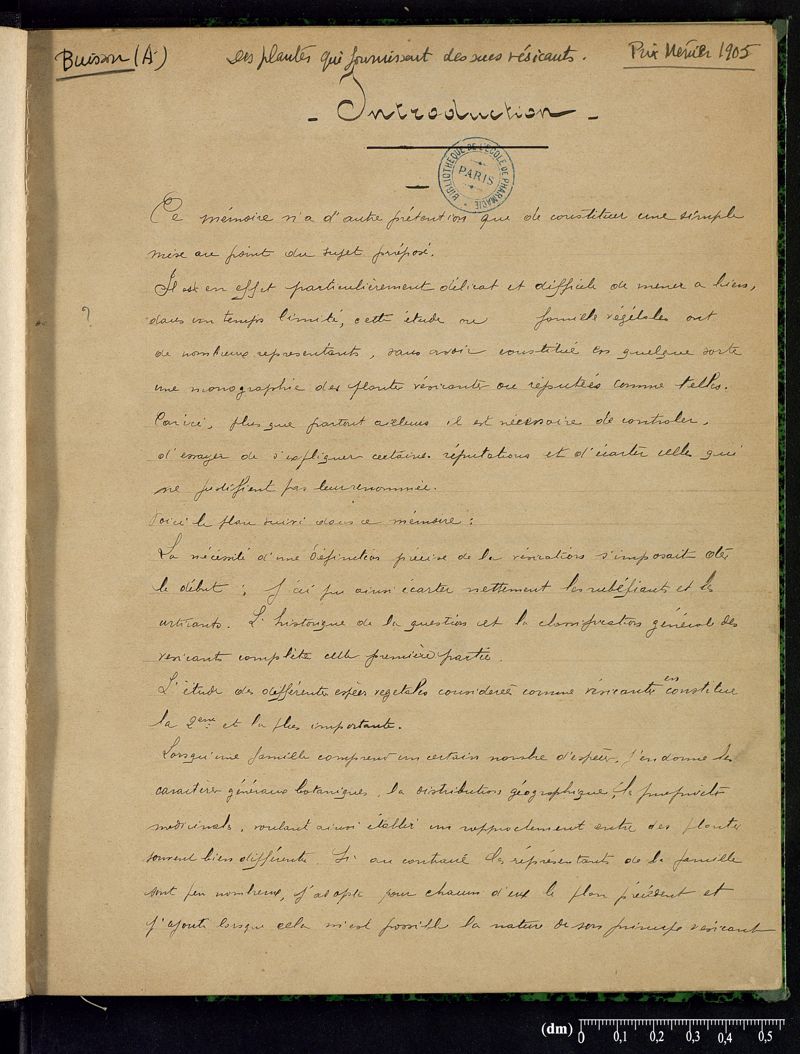 Buisson (A)
Des plantes qui fournissent des sucs vésicants.
Prix Menier 1905
- Introduction -
BIBLIOTHÈQUE DE L'ÉCOLE DE PHARMACIE
PARIS
Ce mémoire n'a d'autre prétention que de constituer une simple
mise au point du sujet proposé.
Il est en effet particulièrement délicat et difficile de mener a bien,
?
dans un temps limité, cette étude ou famille végétales ont
de nombreux représentants, sans avoir constitué en quelque sorte
une monographie des plantes vésicantes ou réputées comme telles.
Car ici, plus que partout ailleurs il est nécessaire de controler,
d'essayer de s'expliquer certaines réputations et d'écarter celles qui
ne justifient pas leur renommée.
Voici le plan suivi dans ce mémoire :
La nécessité d'une définition précise de la vésication s'imposait dès
le début ; J'ai pu ainsi écarter nettement les rubéfiants et les
urticants. L'historique de la question et la classification générale des
vésicants complète cette première partie.
L'étude des différentes espèces vegetales considerées comme vésicantes en constitue
la 2eme et la plus importante.
Lorsqu'une famille comprend un certain nombre d'espèces, j'en donne les
caractères généraux botaniques, la distribution géographique, les propriétés
médicinales, voulant ainsi établir un rapprochement entre des plantes
souvent bien différentes. Si au contraire les représentants de la famille
sont peu nombreux, j'adopte pour chacun d'eux le plan précédent et
j'ajoute lorsque cela m'est possible la nature de son principe vésicant
(dm) 0 0,1 0,2 0,3 0,4 0,5